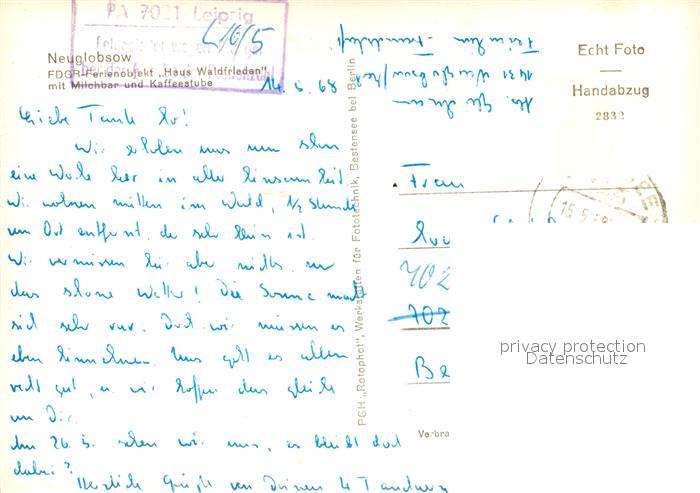 PA 7021 Leipzig
L 16/5
Neuglobsow
FDGB-Ferienobjekt „Haus Waldfrieden"
mit Milchbar und Kaffeestube
14.5.68
Liebe Tante
Wir erholen uns nun schon
eine Woche hier in aller Einsamkeit.
Wir wohnen mitten im Wald, 1/2 Stunde
vom Ort entfernt, der sehr klein ist.
Wir vermissen hier aber nichts, nur
das schöne Wetter! Die Sonne macht
sich sehr rar. Doch wir müssen es
eben hinnehmen. Uns geht es allen
recht gut, u. wir hoffen das gleiche
von Dir.
Am 26.5. sehen wir uns, es bleibt doch
dabei?
Herzliche Grüße von Deinen 4
PGH „Rotophot", Werkstätten für Fototechnik, Bestensee bei Berlin
1431 Neuglobsow
Echt Foto
Handabzug
2832
15.5.68
Frau
702
702
Be
Verbra
privacy protection
Datenschutz